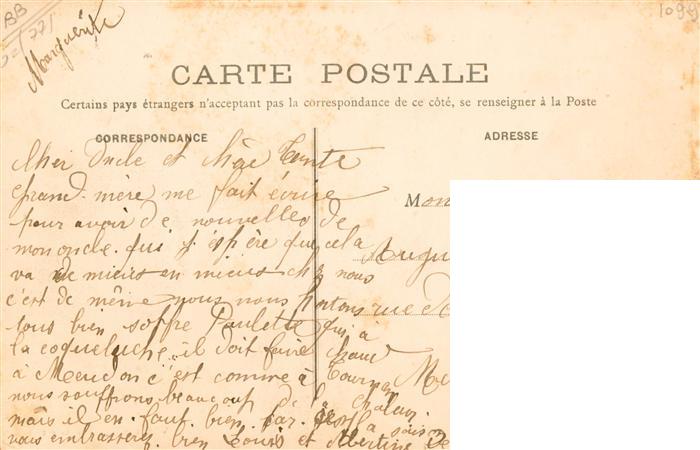 BB
1099
Marguerite
CARTE POSTALE
Certains pays étrangers n'acceptant pas la correspondance de ce côté, se renseigner à la Poste
CORRESPONDANCE
ADRESSE
Cher Oncle et Chère Tente
Grand. mère me fait écrire
pour avoir de nouvelles de
mon oncle. qui j'éspère que cela
va de mieus en mieus chez nous
c'est de même nous nous portons
tous bien soffre Paulette qui à
la coqueluche il doit faire chaud
à Meudon c'est comme à Tournan
nous souffrons beaucoup de la chaleur.
mais il en faut bien car c'est la saison
vous embrasserez bien Louis et Albertine de
Mon
Augu
rue de
Me